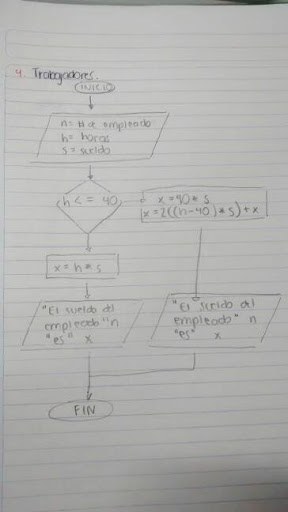 4. Trabajadores.
INICIO
n = # de empleado
h = horas
s = sueldo
h <= 40
x = 40 * s
x = 2((h-40) * s) + x
x = h * s
"El sueldo del
empleado" n
"es" x
"El sueldo del
empleado" n
"es" x
FIN